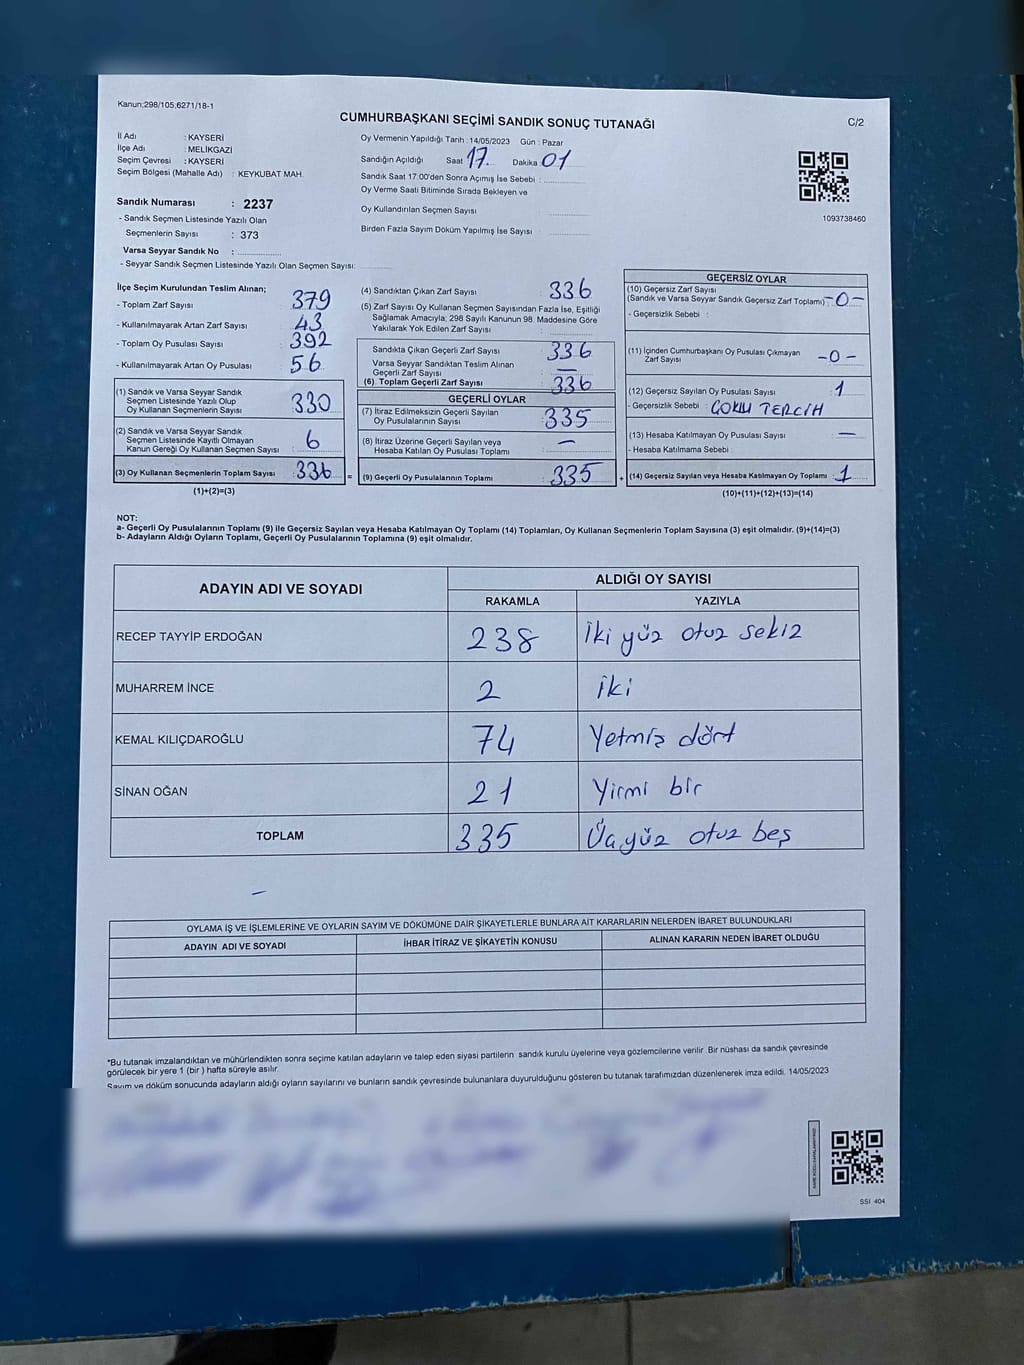 Kanun;298/105,6271/18-1
CUMHURBAŞKANI SEÇİMİ SANDIK SONUÇ TUTANAĞI
C/2
İl Adı : KAYSERİ
İlçe Adı : MELİKGAZİ
Seçim Çevresi : KAYSERİ
Seçim Bölgesi (Mahalle Adı) : KEYKUBAT MAH.
Sandık Numarası : 2237
- Sandık Seçmen Listesinde Yazılı Olan
Seçmenlerin Sayısı : 373
Varsa Seyyar Sandık No :
- Seyyar Sandık Seçmen Listesinde Yazılı Olan Seçmen Sayısı:
Oy Vermenin Yapıldığı Tarih :14/05/2023 Gün : Pazar
Sandığın Açıldığı Saat 17 Dakika 01
Sandık Saat 17:00'den Sonra Açımış İse Sebebi :
Oy Verme Saati Bitiminde Sırada Bekleyen ve
Oy Kullandırılan Seçmen Sayısı
Birden Fazla Sayım Döküm Yapılmış İse Sayısı
1093738460
İlçe Seçim Kurulundan Teslim Alınan;
- Toplam Zarf Sayısı 379
- Kullanılmayarak Artan Zarf Sayısı 43
- Toplam Oy Pusulası Sayısı 392
- Kullanılmayarak Artan Oy Pusulası 56
(1) Sandık ve Varsa Seyyar Sandık
Seçmen Listesinde Yazılı Olup
Oy Kullanan Seçmenlerin Sayısı 330
(2) Sandık ve Varsa Seyyar Sandık
Seçmen Listesinde Kayıtlı Olmayan
Kanun Gereği Oy Kullanan Seçmen Sayısı 6
(3) Oy Kullanan Seçmenlerin Toplam Sayısı : 336 =
(1)+(2)=(3)
(4) Sandıktan Çıkan Zarf Sayısı 336
(5) Zarf Sayısı Oy Kullanan Seçmen Sayısından Fazla İse, Eşitliği
Sağlamak Amacıyla; 298 Sayılı Kanunun 98. Maddesine Göre
Yakılarak Yok Edilen Zarf Sayısı
Sandıkta Çıkan Geçerli Zarf Sayısı 336
Varsa Seyyar Sandıktan Teslim Alınan
Geçerli Zarf Sayısı —
(6) Toplam Geçerli Zarf Sayısı 336
GEÇERLİ OYLAR
(7) İtiraz Edilmeksizin Geçerli Sayılan
Oy Pusulalarının Sayısı 335
(8) İtiraz Üzerine Geçerli Sayılan veya
Hesaba Katılan Oy Pusulası Toplamı —
(9) Geçerli Oy Pusulalarının Toplamı : 335 +
GEÇERSİZ OYLAR
(10) Geçersiz Zarf Sayısı
(Sandık ve Varsa Seyyar Sandık Geçersiz Zarf Toplamı) -0-
- Geçersizlik Sebebi :
(11) İçinden Cumhurbaşkanı Oy Pusulası Çıkmayan
Zarf Sayısı -0-
(12) Geçersiz Sayılan Oy Pusulası Sayısı 1
- Geçersizlik Sebebi : ÇOKLU TERCİH
(13) Hesaba Katılmayan Oy Pusulası Sayısı —
- Hesaba Katılmama Sebebi
(14) Geçersiz Sayılan veya Hesaba Katılmayan Oy Toplamı : 1
(10)+(11)+(12)+(13)=(14)
NOT:
a- Geçerli Oy Pusulalarının Toplamı (9) ile Geçersiz Sayılan veya Hesaba Katılmayan Oy Toplamı (14) Toplamları, Oy Kullanan Seçmenlerin Toplam Sayısına (3) eşit olmalıdır. (9)+(14)=(3)
b- Adayların Aldığı Oyların Toplamı, Geçerli Oy Pusulalarının Toplamına (9) eşit olmalıdır.
ADAYIN ADI VE SOYADI ALDIĞI OY SAYISI
RAKAMLA YAZIYLA
RECEP TAYYİP ERDOĞAN 238 İki yüz otuz sekiz
MUHARREM İNCE 2 İki
KEMAL KILIÇDAROĞLU 74 Yetmiş dört
SİNAN OĞAN 21 Yirmi bir
TOPLAM 335 Üçyüz otuz beş
OYLAMA İŞ VE İŞLEMLERİNE VE OYLARIN SAYIM VE DÖKÜMÜNE DAİR ŞİKAYETLERLE BUNLARA AİT KARARLARIN NELERDEN İBARET BULUNDUKLARI
ADAYIN ADI VE SOYADI İHBAR İTİRAZ VE ŞİKAYETİN KONUSU ALINAN KARARIN NEDEN İBARET OLDUĞU
*Bu tutanak imzalandıktan ve mühürlendikten sonra seçime katılan adayların ve talep eden siyasi partilerin sandık kurulu üyelerine veya gözlemcilerine verilir. Bir nüshası da sandık çevresinde
görülecek bir yere 1 (bir ) hafta süreyle asılır.
Sayım ve döküm sonucunda adayların aldığı oyların sayılarını ve bunların sandık çevresinde bulunanlara duyurulduğunu gösteren bu tutanak tarafımızdan düzenlenerek imza edildi. 14/05/2023
SSİ 404